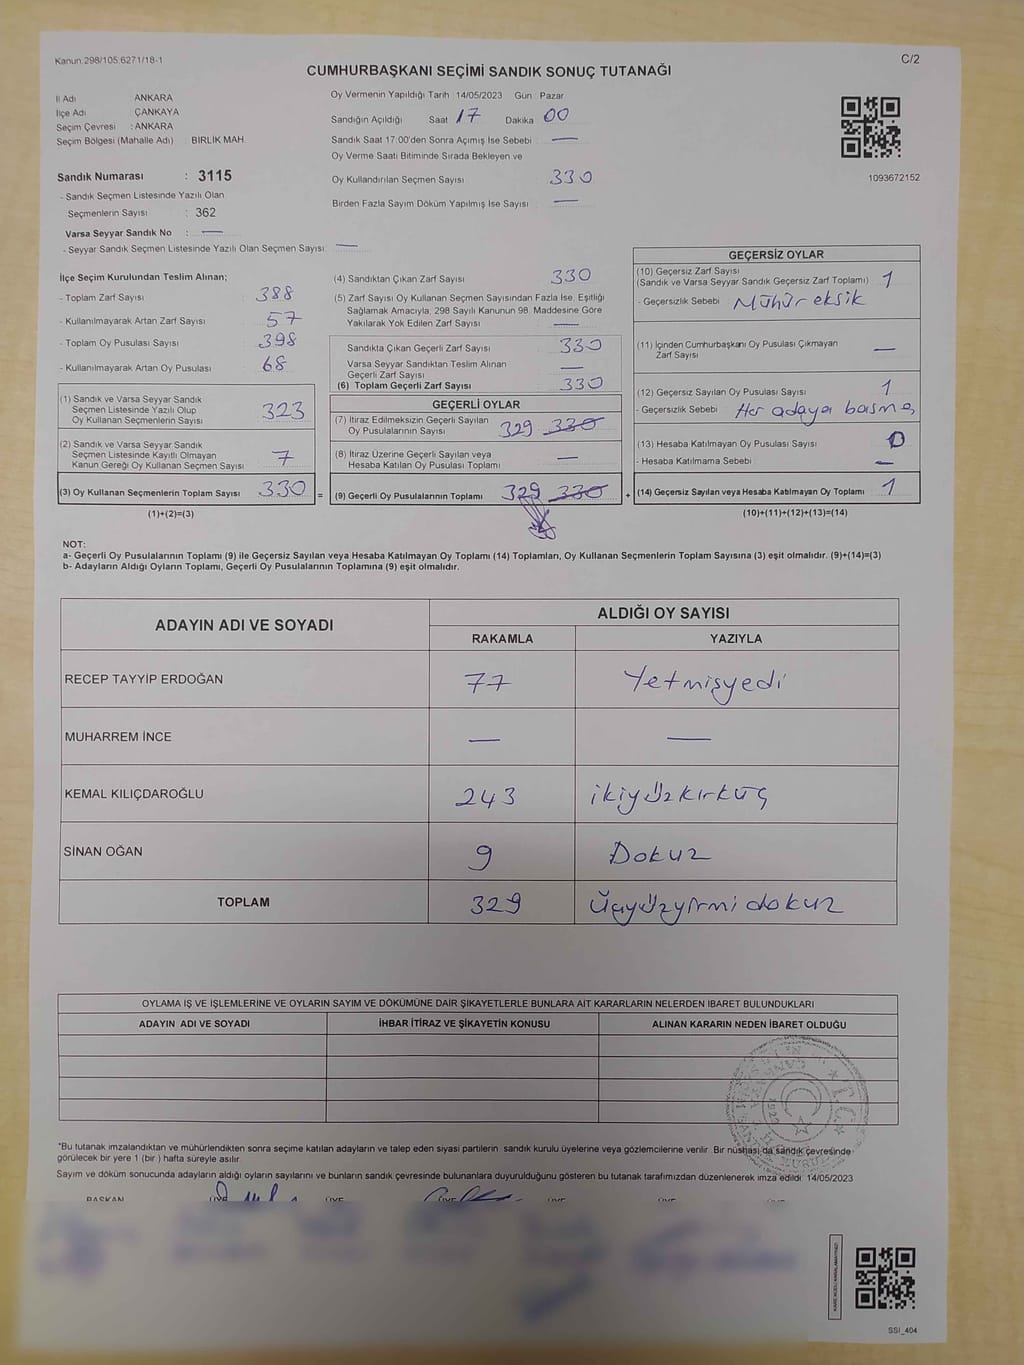 Kanun.298/105.6271/18-1
C/2
CUMHURBAŞKANI SEÇİMİ SANDIK SONUÇ TUTANAĞI
İl Adı ANKARA
İlçe Adı ÇANKAYA
Seçim Çevresi : ANKARA
Seçim Bölgesi (Mahalle Adı) BİRLİK MAH
Sandık Numarası : 3115
- Sandık Seçmen Listesinde Yazılı Olan
Seçmenlerin Sayısı : 362
Varsa Seyyar Sandık No : —
- Seyyar Sandık Seçmen Listesinde Yazılı Olan Seçmen Sayısı: —
Oy Vermenin Yapıldığı Tarih 14/05/2023 Gün Pazar
Sandığın Açıldığı Saat 17 Dakika 00
Sandık Saat 17:00'den Sonra Açımış İse Sebebi : —
Oy Verme Saati Bitiminde Sırada Bekleyen ve
Oy Kullandırılan Seçmen Sayısı 330
Birden Fazla Sayım Döküm Yapılmış İse Sayısı : —
1093672152
İlçe Seçim Kurulundan Teslim Alınan;
- Toplam Zarf Sayısı : 388
- Kullanılmayarak Artan Zarf Sayısı : 57
- Toplam Oy Pusulası Sayısı : 398
- Kullanılmayarak Artan Oy Pusulası : 68
(1) Sandık ve Varsa Seyyar Sandık
Seçmen Listesinde Yazılı Olup
Oy Kullanan Seçmenlerin Sayısı 323
(2) Sandık ve Varsa Seyyar Sandık
Seçmen Listesinde Kayıtlı Olmayan
Kanun Gereği Oy Kullanan Seçmen Sayısı 7
(3) Oy Kullanan Seçmenlerin Toplam Sayısı 330 =
(1)+(2)=(3)
(4) Sandıktan Çıkan Zarf Sayısı 330
(5) Zarf Sayısı Oy Kullanan Seçmen Sayısından Fazla İse, Eşitliği
Sağlamak Amacıyla, 298 Sayılı Kanunun 98. Maddesine Göre
Yakılarak Yok Edilen Zarf Sayısı : —
Sandıkta Çıkan Geçerli Zarf Sayısı : 330
Varsa Seyyar Sandıktan Teslim Alınan
Geçerli Zarf Sayısı : —
(6) Toplam Geçerli Zarf Sayısı : 330
GEÇERLİ OYLAR
(7) İtiraz Edilmeksizin Geçerli Sayılan
Oy Pusulalarının Sayısı 329 330
(8) İtiraz Üzerine Geçerli Sayılan veya
Hesaba Katılan Oy Pusulası Toplamı —
(9) Geçerli Oy Pusulalarının Toplamı 329 330 +
GEÇERSİZ OYLAR
(10) Geçersiz Zarf Sayısı
(Sandık ve Varsa Seyyar Sandık Geçersiz Zarf Toplamı) 1
- Geçersizlik Sebebi : Mühür eksik
(11) İçinden Cumhurbaşkanı Oy Pusulası Çıkmayan
Zarf Sayısı —
(12) Geçersiz Sayılan Oy Pusulası Sayısı 1
- Geçersizlik Sebebi : Her adaya basma
(13) Hesaba Katılmayan Oy Pusulası Sayısı 0
- Hesaba Katılmama Sebebi : —
(14) Geçersiz Sayılan veya Hesaba Katılmayan Oy Toplamı 1
(10)+(11)+(12)+(13)=(14)
NOT:
a- Geçerli Oy Pusulalarının Toplamı (9) ile Geçersiz Sayılan veya Hesaba Katılmayan Oy Toplamı (14) Toplamları, Oy Kullanan Seçmenlerin Toplam Sayısına (3) eşit olmalıdır. (9)+(14)=(3)
b- Adayların Aldığı Oyların Toplamı, Geçerli Oy Pusulalarının Toplamına (9) eşit olmalıdır.
ADAYIN ADI VE SOYADI ALDIĞI OY SAYISI
RAKAMLA YAZIYLA
RECEP TAYYİP ERDOĞAN 77 Yetmişyedi
MUHARREM İNCE — —
KEMAL KILIÇDAROĞLU 243 ikiyüzkırküç
SİNAN OĞAN 9 Dokuz
TOPLAM 329 Üçyüzyirmidokuz
OYLAMA İŞ VE İŞLEMLERİNE VE OYLARIN SAYIM VE DÖKÜMÜNE DAİR ŞİKAYETLERLE BUNLARA AİT KARARLARIN NELERDEN İBARET BULUNDUKLARI
ADAYIN ADI VE SOYADI İHBAR İTİRAZ VE ŞİKAYETİN KONUSU ALINAN KARARIN NEDEN İBARET OLDUĞU
*Bu tutanak imzalandıktan ve mühürlendikten sonra seçime katılan adayların ve talep eden siyasi partilerin sandık kurulu üyelerine veya gözlemcilerine verilir. Bir nüshası da sandık çevresinde
görülecek bir yere 1 (bir ) hafta süreyle asılır.
Sayım ve döküm sonucunda adayların aldığı oyların sayılarını ve bunların sandık çevresinde bulunanlara duyurulduğunu gösteren bu tutanak tarafımızdan düzenlenerek imza edildi. 14/05/2023
BAŞKAN ÜYE ÜYE ÜYE ÜYE ÜYE
SSI_404